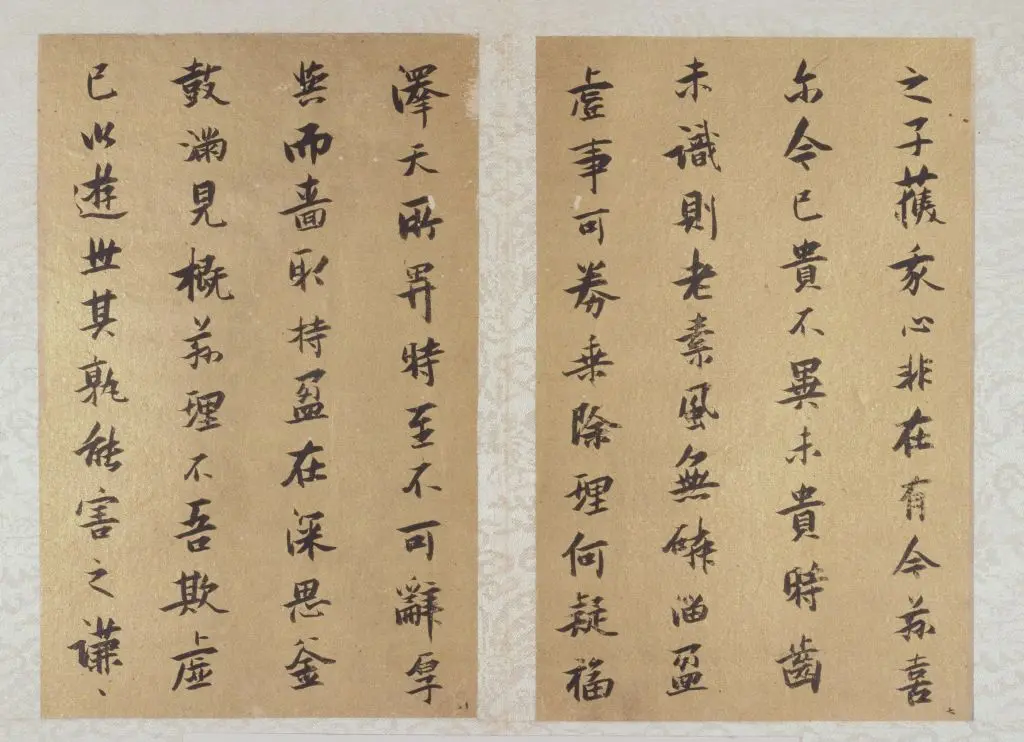 之子獲我心非在有今茲喜
尓今已貴不異未貴時齒
未識則老素風無磷淄盈
虛事可券乘除理何疑福
七
澤天所畀時至不可辭厚
與而嗇取持盈在深思釜
鼓滿見概茲理不吾欺虛
已以遊世其孰能害之謙〻
八